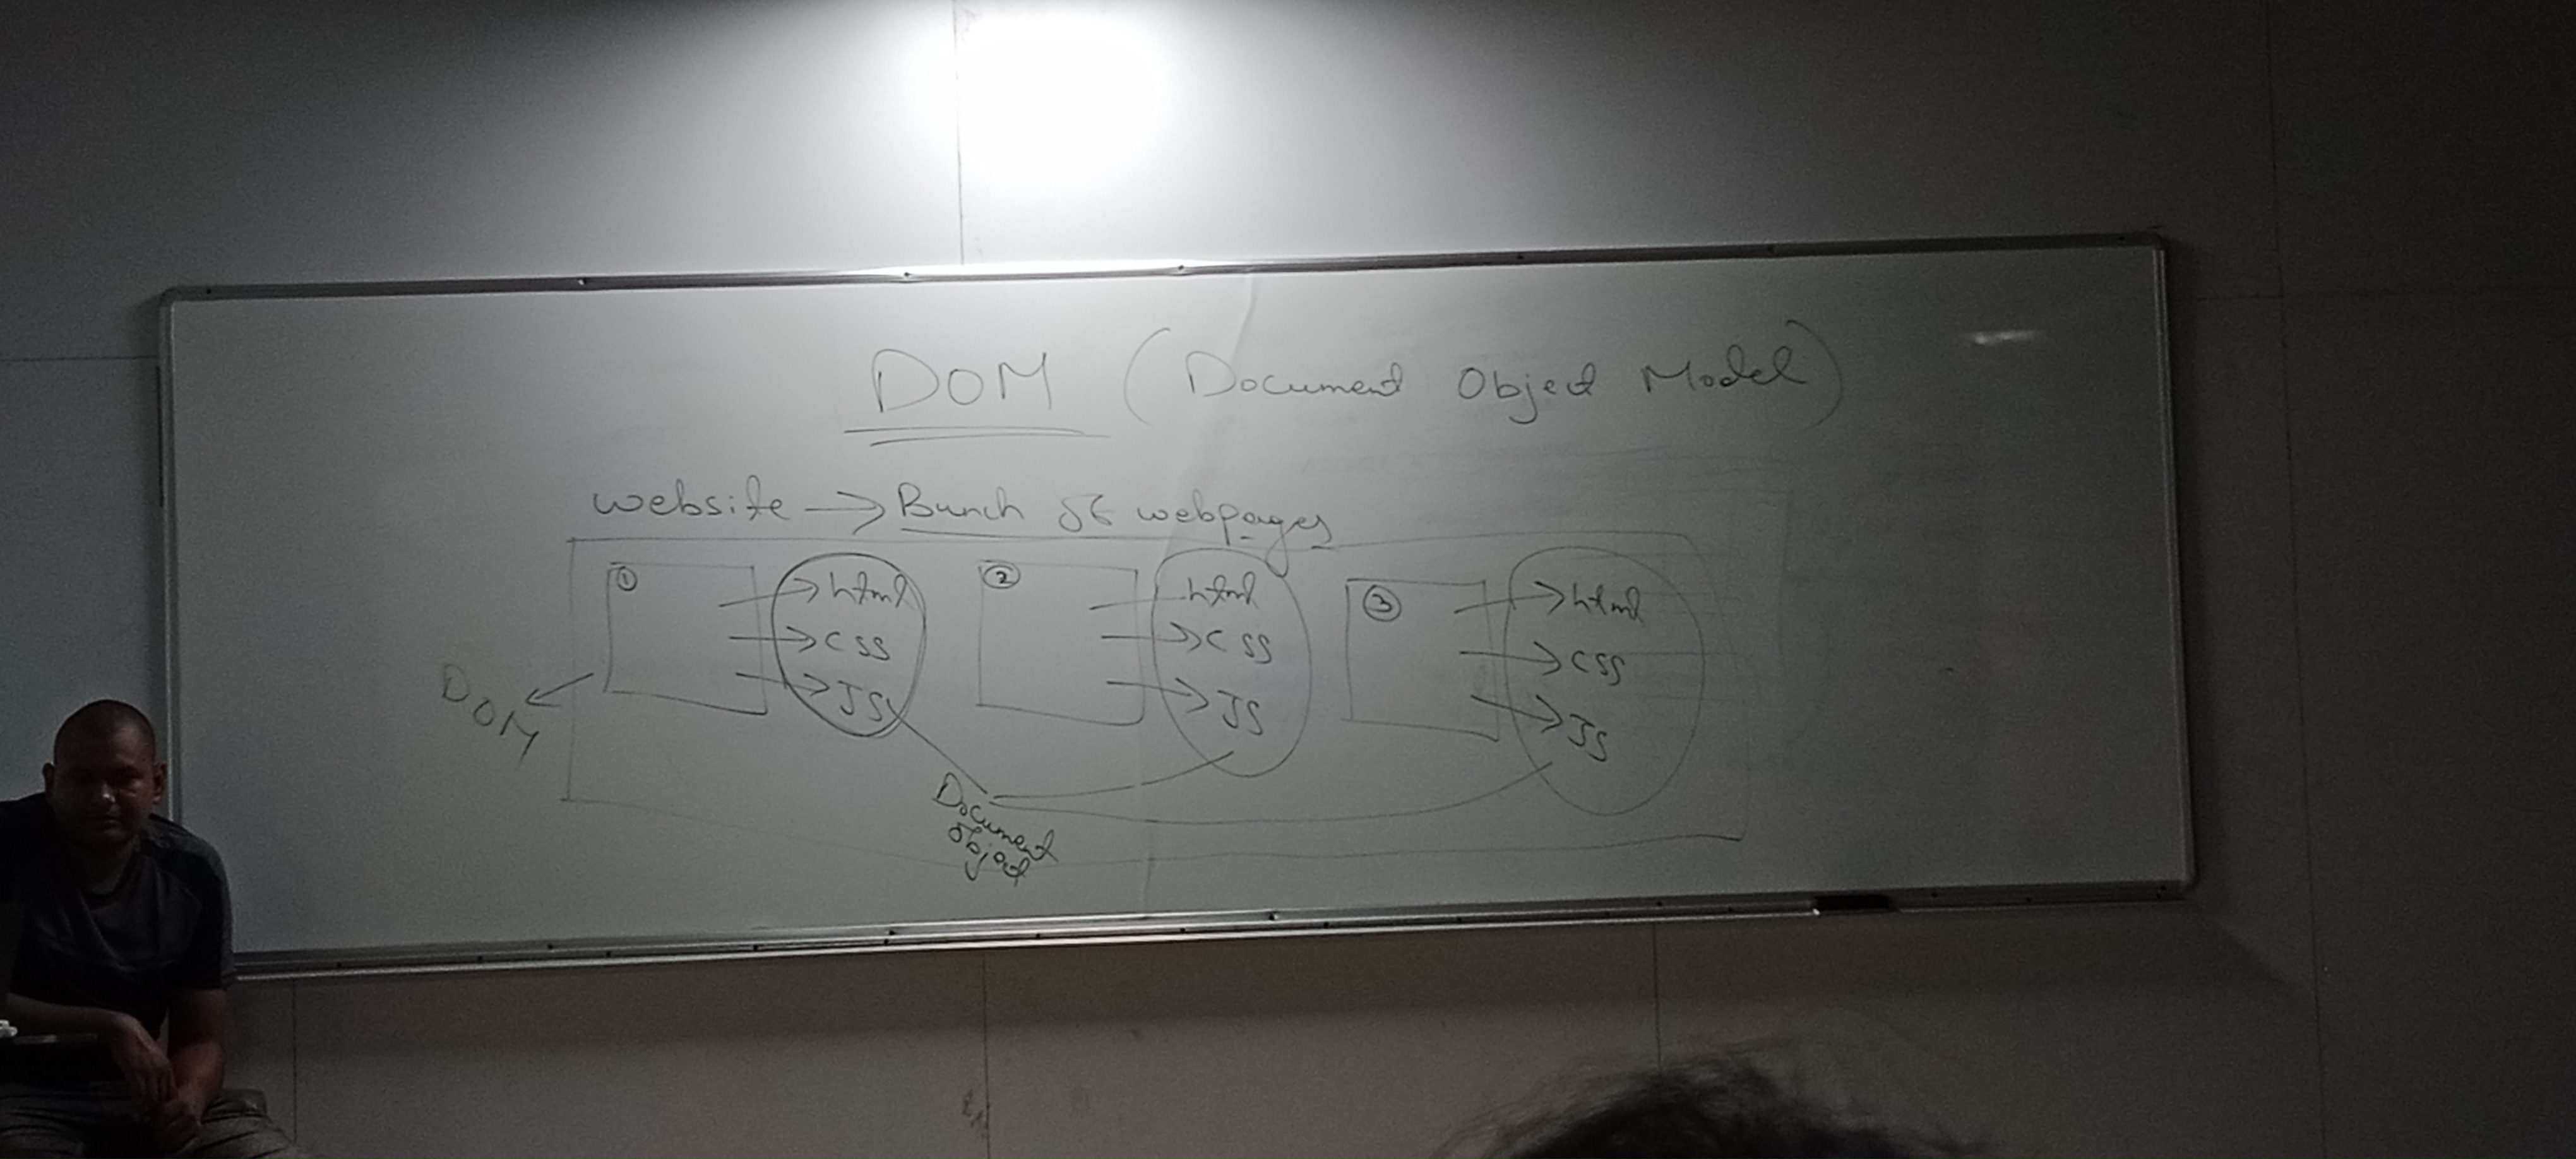 DOM (Document Object Model)
website → Bunch of webpages
① → html ② html ③ → html
→ CSS → CSS → CSS
→ JS → JS → JS
DOM
Document
object